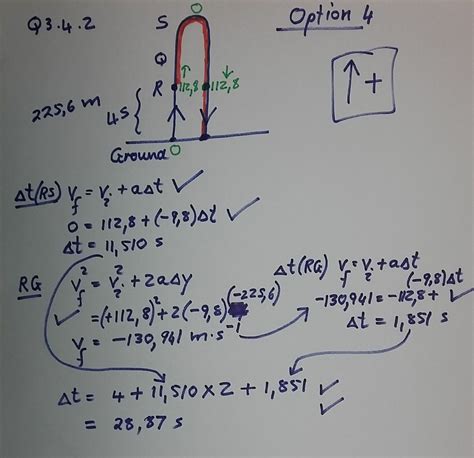 Q3.4.2
Option 4
O
S
Q
R ↑112,8 ↓112,8
↑ +
225,6 m
4s
Ground O
Δt(RS) v_f = v_i + aΔt ✓
0 = 112,8 + (-9,8)Δt ✓
Δt = 11,510 s
RG v_f² = v_i² + 2aΔy
✓ = (+112,8)² + 2(-9,8)(-225,6)
v_f = -130,941 m·s⁻¹
Δt(RG) v_f = v_i + aΔt
-130,941 = -112,8 + (-9,8)Δt ✓
Δt = 1,851 s
Δt = 4 + 11,510 x 2 + 1,851 ✓
= 28,87 s ✓